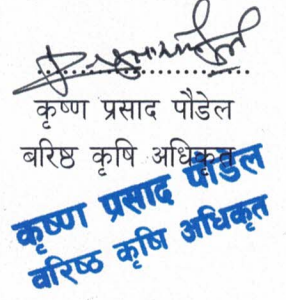 कृष्ण प्रसाद पौडेल
बरिष्ठ कृषि अधिकृत
कृष्ण प्रसाद पौडेल
वरिष्ठ कृषि अधिकृत